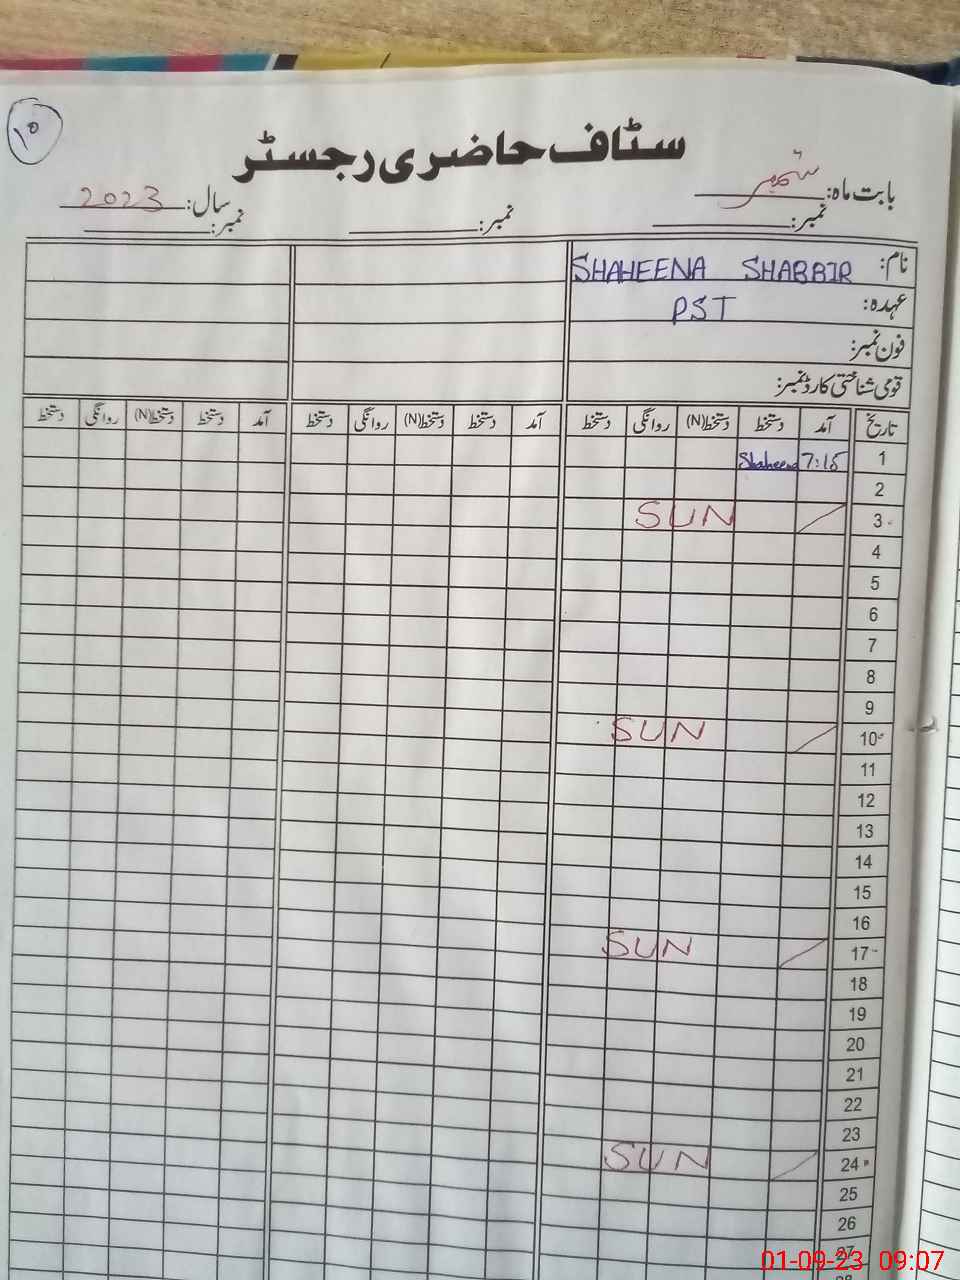 ۱۰
سٹاف حاضری رجسٹر
بابت ماہ: ستمبر سال: 2023
نمبر: نمبر: نمبر:
نام: SHAHEENA SHABBIR
عہدہ: PST
فون نمبر:
قومی شناختی کارڈ نمبر:
تاریخ آمد دستخط دستخط(N) روانگی دستخط آمد دستخط دستخط(N) روانگی دستخط آمد دستخط دستخط(N) روانگی دستخط
1 7:15 Shaheena
2
3 SUN
4
5
6
7
8
9
10 SUN
11
12
13
14
15
16
17 SUN
18
19
20
21
22
23
24 SUN
25
26
27
01-09-23 09:07